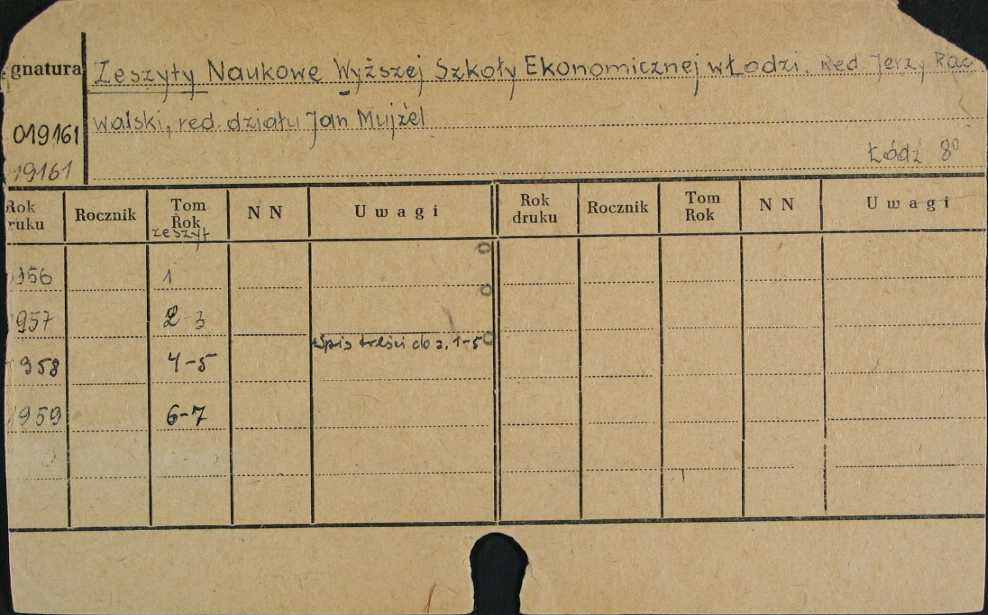 gnatura Zeszyty Naukowe Wyższej Szkoły Ekonomicznej w Łodzi. Red. Jerzy Rac
019161 walski, red. działu Jan Mujżel
19161 Łódź 8°
Rok druku Rocznik Tom Rok zeszyt N N Uwagi Rok druku Rocznik Tom Rok N N Uwagi
1956 1
1957 2-3
Spis treści do z. 1-5
1958 4-5
1959 6-7